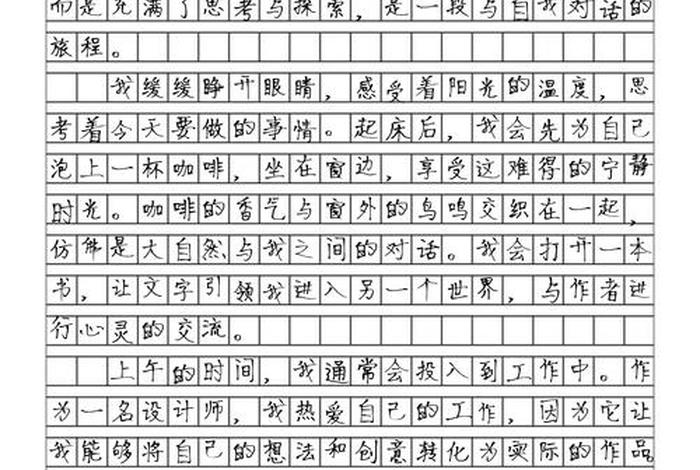 而是充满了思考与探索，是一段与自我对话的
旅程。
我缓缓睁开眼睛，感受着阳光的温度，思
考着今天要做的事情。起床后，我会先为自己
泡上一杯咖啡，坐在窗边，享受这难得的宁静
时光。咖啡的香气与窗外的鸟鸣交织在一起，
仿佛是大自然与我之间的对话。我会打开一本
书，让文字引领我进入另一个世界，与作者进
行心灵的交流。
上午的时间，我通常会投入到工作中。作
为一名设计师，我热爱自己的工作，因为它让
我能够将自己的想法和创意转化为实际的作品。